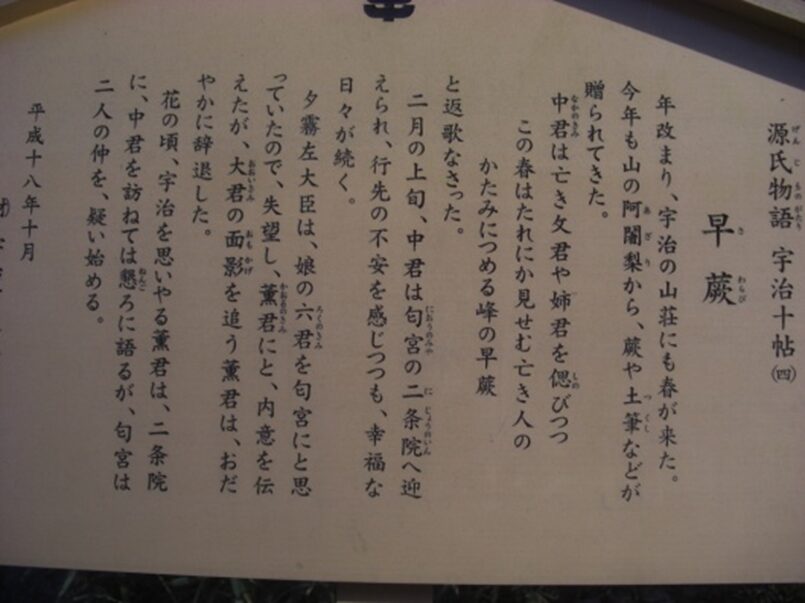 源氏物語 宇治十帖㈣
早蕨
年改まり、宇治の山荘にも春が来た。
今年も山の阿闍梨から、蕨や土筆などが
贈られてきた。
中君は亡き父君や姉君を偲びつつ
この春はたれにか見せむ亡き人の
かたみにつめる峰の早蕨
と返歌なさった。
二月の上旬、中君は匂宮の二条院へ迎
えられ、行先の不安を感じつつも、幸福な
日々が続く。
夕霧左大臣は、娘の六君を匂宮にと思
っていたので、失望し、薫君にと、内意を伝
えたが、大君の面影を追う薫君は、おだ
やかに辞退した。
花の頃、宇治を思いやる薫君は、二条院
に、中君を訪ねては懇ろに語るが、匂宮は
二人の仲を、疑い始める。
平成十八年十月